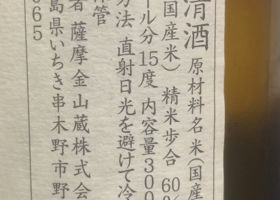 清酒 原材料名 米(国産
国産米) 精米歩合 60%
ール分 15度 内容量 300
方法 直射日光を避けて冷
管
者 薩摩金山蔵株式会
島県いちき串木野市野
65